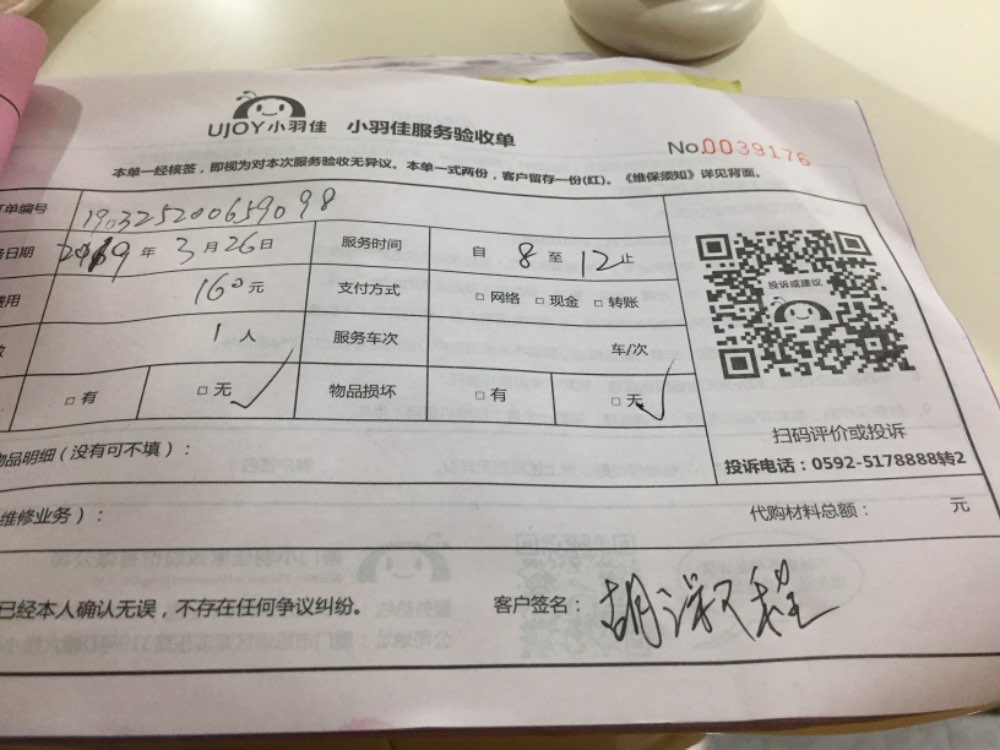 UJOY小羽佳 小羽佳服务验收单
No.0039176
本单一经核签，即视为对本次服务验收无异议。本单一式两份，客户留存一份(红)。《维保须知》详见背面。
订单编号 190325200659098
务日期 2019 年 3 月 26 日 服务时间 自 8 至 12 止
费用 160 元 支付方式 □ 网络 □ 现金 □ 转账
数 1 人 服务车次 车/次
□ 有 □ 无 ✓ 物品损坏 □ 有 □ 无 ✓
投诉或建议
扫码评价或投诉
投诉电话：0592-5178888转2
物品明细（没有可不填）：
维修业务）：
代购材料总额： 元
已经本人确认无误，不存在任何争议纠纷。 客户签名：胡